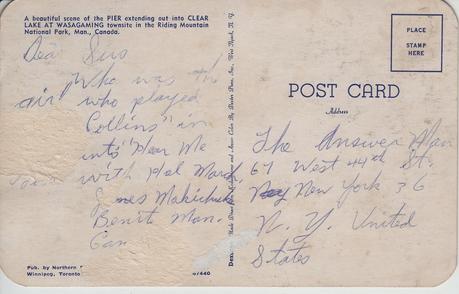 A beautiful scene of the PIER extending out into CLEAR
LAKE AT WASAGAMING townsite in the Riding Mountain
National Park, Man., Canada.
Dear Sirs
Who was the
who played
Collins" in
into "Hear Me
with Hal March
Benito Man.
Can
Pub. by Northern
Winnipeg, Toronto
/440
PLACE
STAMP
HERE
POST CARD
Address
The Answer Man
67 West 44th St.
New York 36
N. Y. United
States